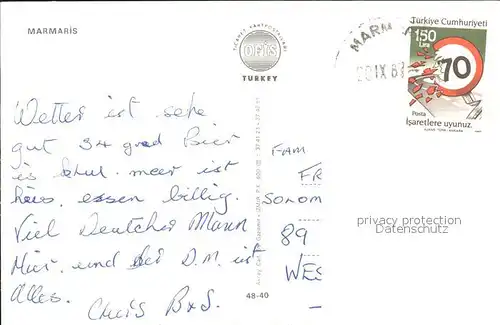 MARMARIS
TİCARET KARTPOSTALLARI
OFİS
TURKEY
MARM
20 IX 87
Türkiye Cumhuriyeti
150
Lira
70
Posta
İşaretlere uyunuz.
Wetter ist sehe
gut 34 grad Bier
is khul. meer ist
heis, essen billig.
Viel Deutcher Mann
Hier, und der D.M. ist
alles.
Chris B+S.
FAM
FR
SONOM
89
WES
privacy protection
Datenschutz
48-40